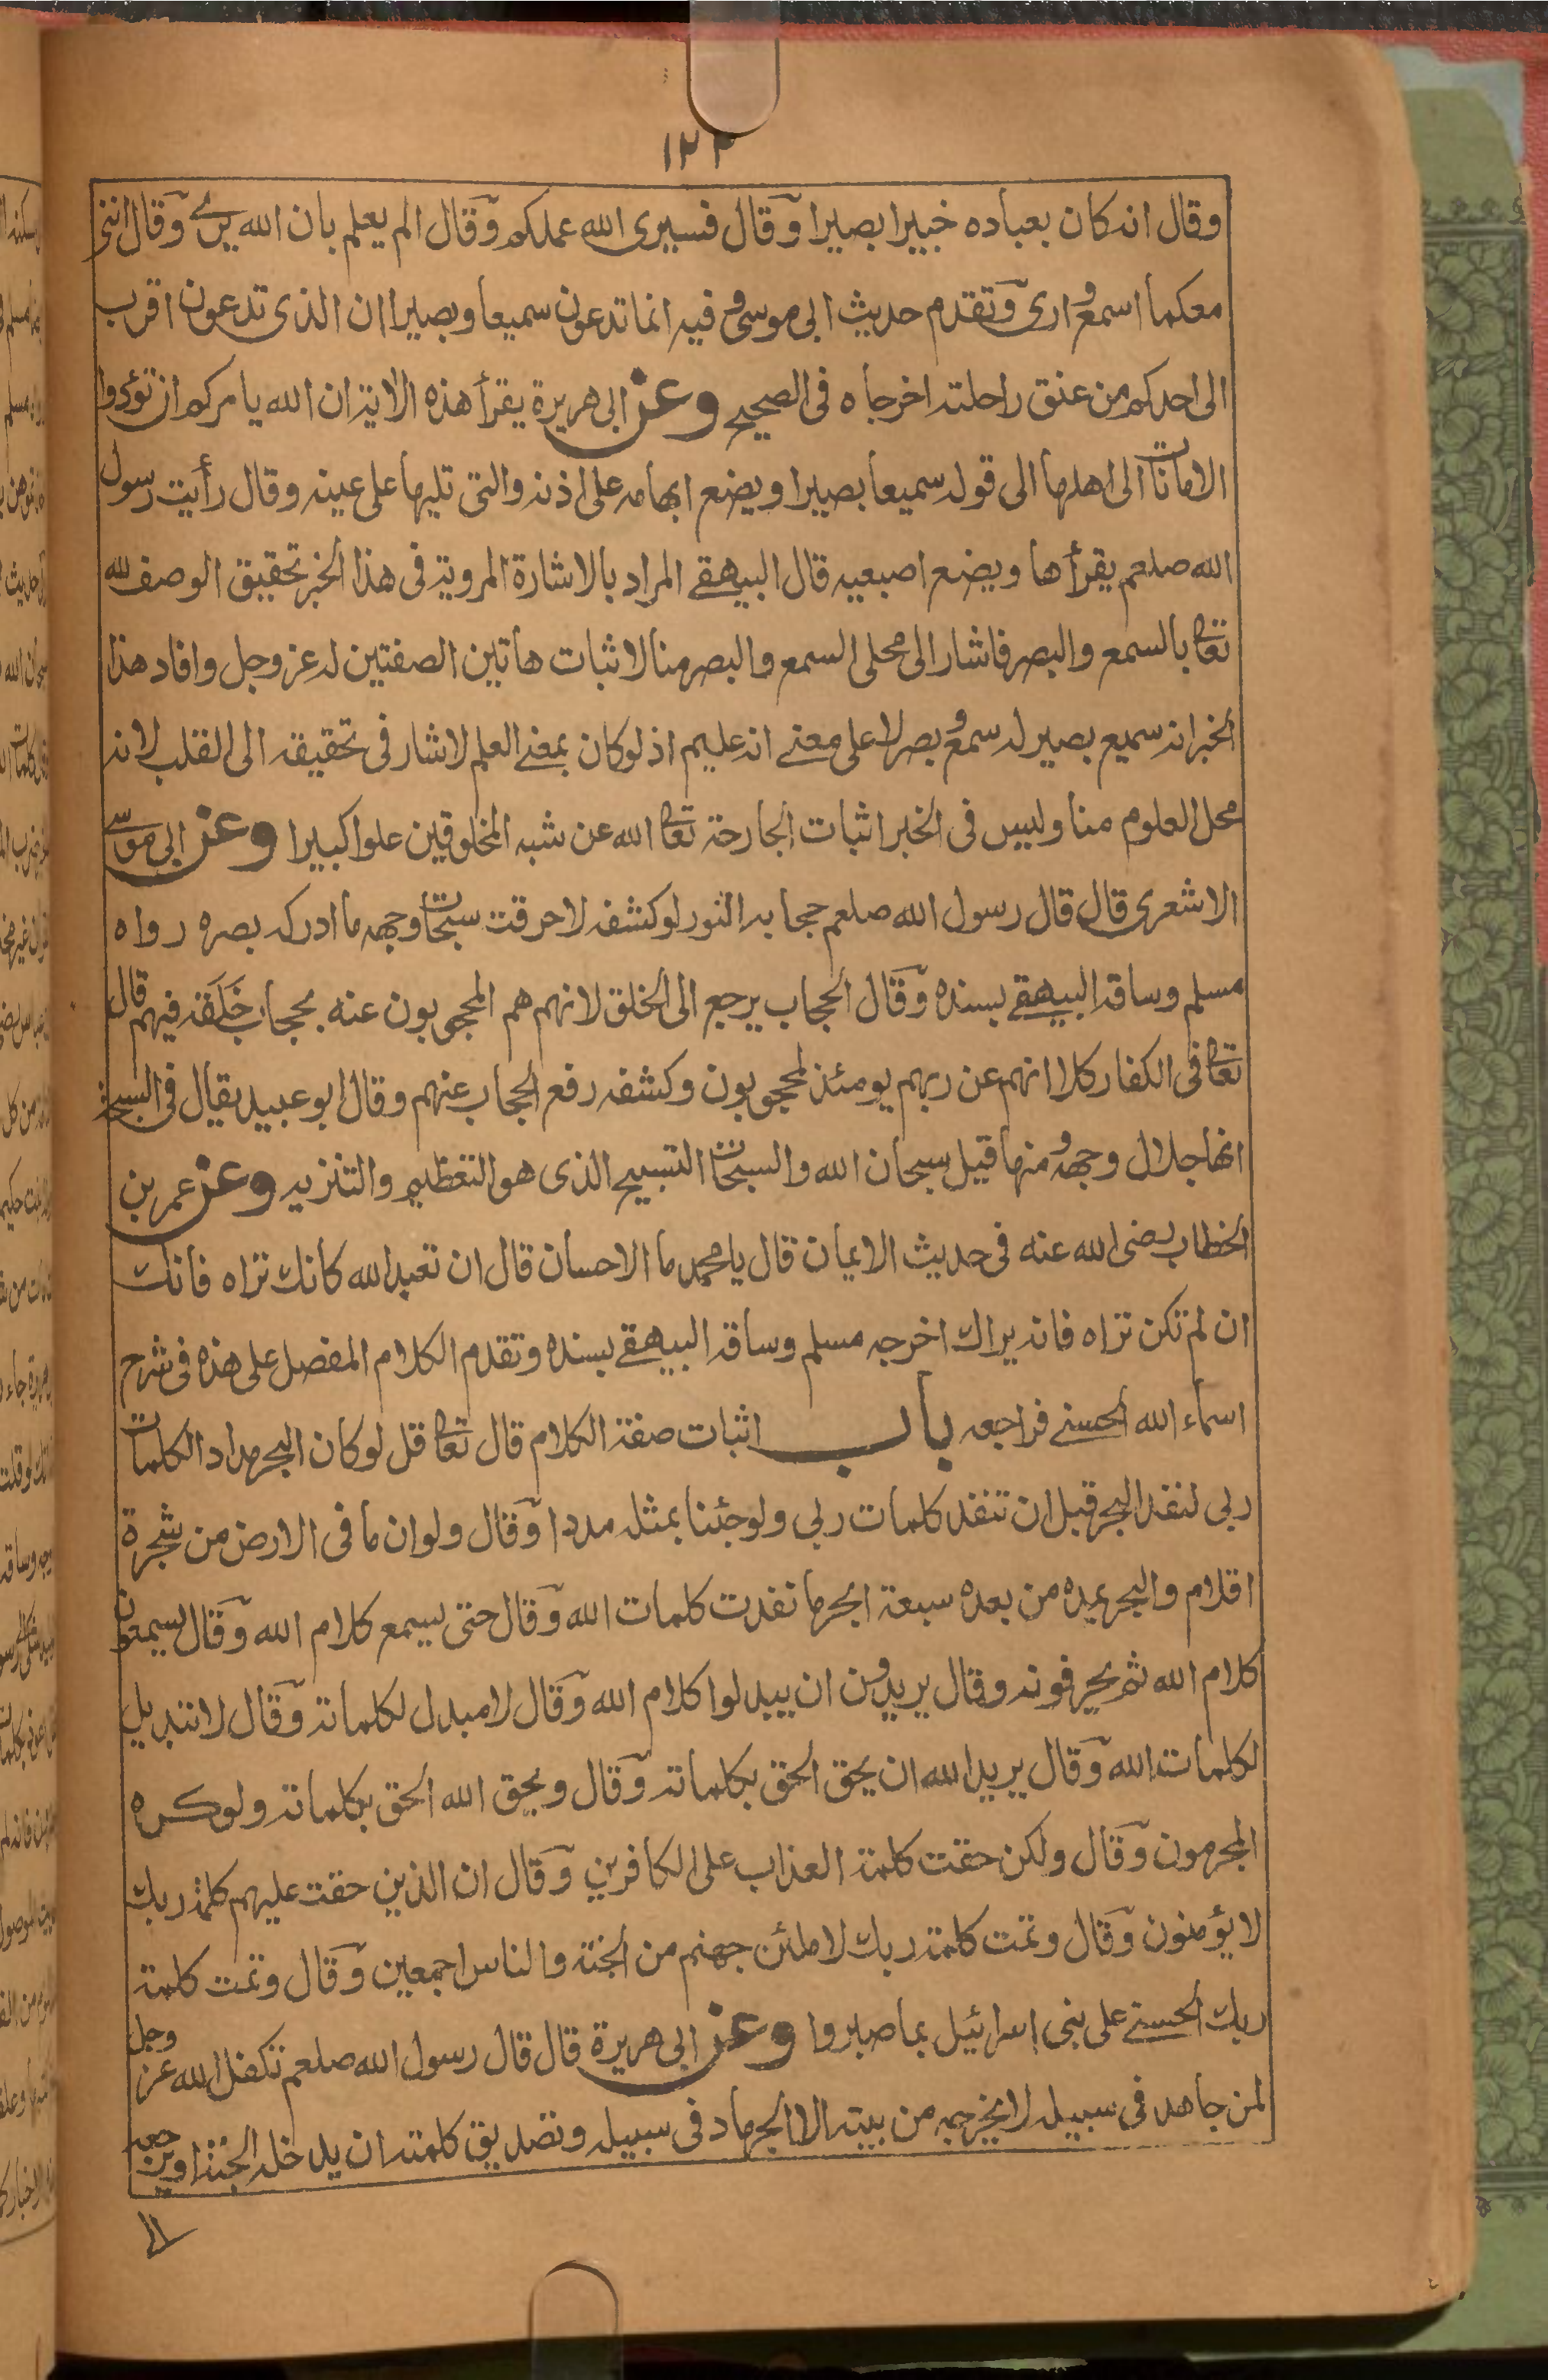 ١٢٣
وقال انه كان بعباده خبيرا بصيرا وقال فسيرى الله عملكم وقال الم يعلم بان الله يرى وقال انني
معكما اسمع وارى وتقدم حديث ابى موسى وفيه انما تدعون سميعا وبصيرا ان الذى تدعون اقرب
الى احدكم من عنق راحلته اخرجاه فى الصحيح وعن ابى هريرة يقرأ هذه الاية ان الله يامركم ان تؤدوا
الامانات الى اهلها الى قوله سميعا بصيرا ويضع ابهامه على اذنه والتى تليها على عينه وقال رأيت رسول
الله صلعم يقرأها ويضع اصبعيه قال البيهقي المراد بالاشارة المروية فى هذا الخبر تحقيق الوصف لله
تعالى بالسمع والبصر فاشار الى محلى السمع والبصر منا لاثبات هاتين الصفتين له عز وجل وافاد هذا
الخبر انه سميع بصير له سمع وبصر لا على معنى انه عليم اذ لو كان بمعنى العلم لاشار فى تحقيقه الى القلب لانه
محل العلوم منا وليس فى الخبر اثبات الجارحة تعالى الله عن شبه المخلوقين علوا كبيرا وعن ابى موسى
الاشعرى قال قال رسول الله صلعم حجابه النور لو كشفه لاحرقت سبحات وجهه ما ادركه بصره رواه
مسلم وساقه البيهقي بسنده وقال الحجاب يرجع الى الخلق لانهم هم المحجوبون عنه بحجاب خَلَقه فيهم قال
تعالى فى الكفار كلا انهم عن ربهم يومئذ لمحجوبون وكشفه رفع الحجاب عنهم وقال ابو عبيد يقال فى السبحة
انها جلال وجهه ومنها قيل سبحان الله والسبحات التسبيح الذى هو التعظيم والتنزيه وعن عمر بن
الخطاب رضى الله عنه فى حديث الايمان قال يا محمد ما الاحسان قال ان تعبد الله كانك تراه فانك
ان لم تكن تراه فانه يراك اخرجه مسلم وساقه البيهقي بسنده وتقدم الكلام المفصل على هذه فى شرح
اسماء الله الحسنى فراجعه باب اثبات صفة الكلام قال تعالى قل لو كان البحر مدادا لكلمات
ربى لنفد البحر قبل ان تنفد كلمات ربى ولو جئنا بمثله مددا وقال ولو ان ما فى الارض من شجرة
اقلام والبحر يمده من بعده سبعة ابحر ما نفدت كلمات الله وقال حتى يسمع كلام الله وقال يسمعون
كلام الله ثم يحرفونه وقال يريدون ان يبدلوا كلام الله وقال لا مبدل لكلماته وقال لا تبديل
لكلمات الله وقال يريد الله ان يحق الحق بكلماته وقال ويحق الله الحق بكلماته ولو كره
المجرمون وقال ولكن حقت كلمة العذاب على الكافرين وقال ان الذين حقت عليهم كلمة ربك
لا يؤمنون وقال وتمت كلمة ربك لاملئن جهنم من الجنة والناس اجمعين وقال وتمت كلمة
ربك الحسنى على بنى اسرائيل بما صبروا وعن ابى هريرة قال قال رسول الله صلعم تكفل الله عز وجل
لمن جاهد فى سبيله لا يخرجه من بيته الا الجهاد فى سبيله وتصديق كلمته ان يدخله الجنة او يرجعه